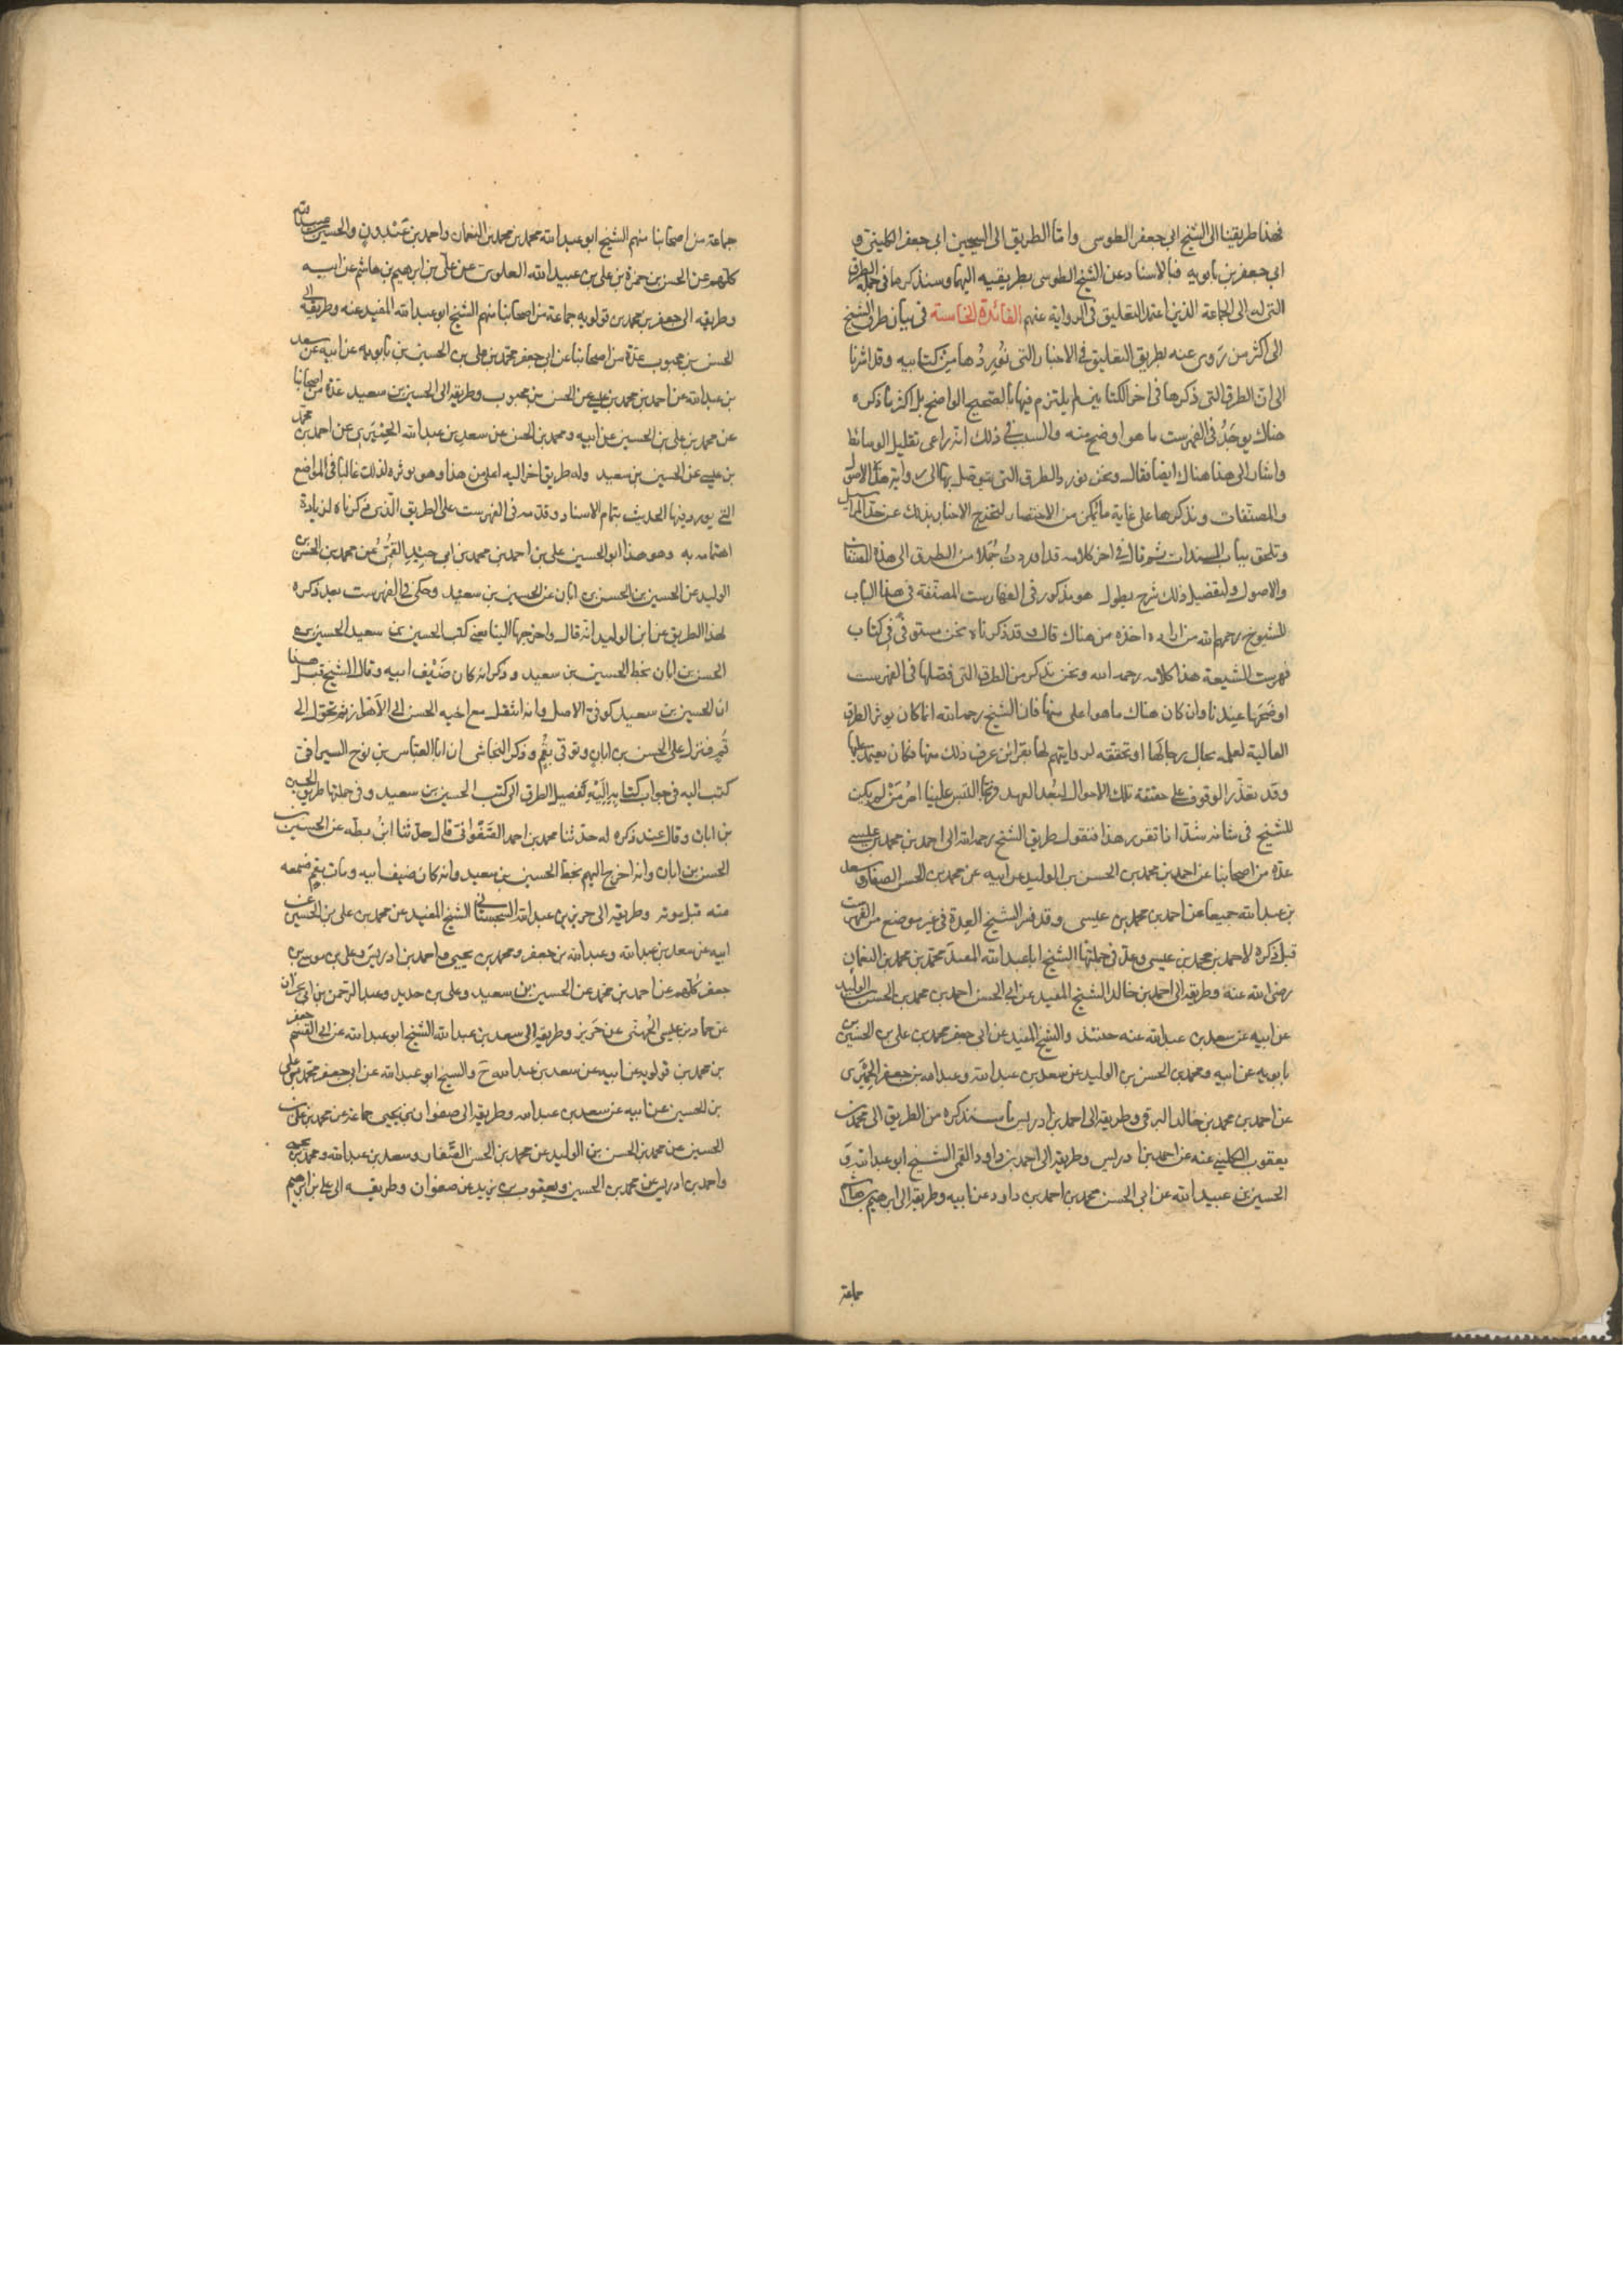 فهذا طريقنا الى الشيخ ابي جعفر الطوسى واما الطريق الى الشيخين ابى جعفر الكلينى و
ابى جعفر بن بابويه فبالاسناد عن الشيخ الطوسى بطريقيه اليهما وسنذكرها فى جملة الطرق
التى له الى الجماعة الذين اعتمد التعليق فى الرواية عنهم الفائدة الخامسة فى بيان طرق الشيخ
الى اكثر من روى عنه بطريق التعليق فى الاخبار التى نوردها من كتابيه وقد اثرنا
الى ان الطرق التى ذكرها فى اخر الكتابين لم يلتزم فيها بالصحيح الواضح بل اكثر ما ذكره
هناك يوجد فى الفهرست ما هو اوضح منه والسبب فى ذلك انه راعى تقليل الوسائط
واشار الى هذا هناك ايضا فقال ونحن نورد الطرق التى يتوصل بها الى رواية هذه الاصول
والمصنفات ونذكرها على غاية ما يمكن من الاختصار لتخرج الاخبار بذلك عن حد المراسيل
وتلحق بباب المسندات ثم قال فى اخر كلامه قد اوردت جملا من الطرق الى هذه المصنفات
والاصول ولتفصيل ذلك شرح يطول هو مذكور فى الفهارست المصنفة فى هذا الباب
للشيوخ رحمهم الله من اراده اخذه من هناك قال وقد ذكرناه نحن مستوفى فى كتاب
فهرست الشيعة هذا كلامه رحمه الله ونحن نذكر من الطرق التى فصلها فى الفهرست
اوضحها عندنا وان كان هناك ما هو اعلى منها فان الشيخ رحمه الله انما كان يوثر الطرق
العالية لعلمه بحال رجالها او تحققه لروايتهم لها بقرائن عرف ذلك منها فكان يعتمد عليها
وقد تعذر الوقوف على حقيقة تلك الاحوال لبعد العهد وربما التبس علينا امر من لم يكن
للشيخ فى شانه شك اذا تقرر هذا فنقول طريق الشيخ رحمه الله الى احمد بن محمد بن عيسى
عدة من اصحابنا عن احمد بن محمد بن الحسن بن الوليد عن ابيه عن محمد بن الحسن الصفار وسعد
بن عبد الله جميعا عن احمد بن محمد بن عيسى وقد فسر الشيخ العدة فى غير موضع من الفهرست
قبل ذكره لاحمد بن محمد بن عيسى وعد فى جملتها الشيخ ابا عبد الله المفيد محمد بن محمد بن النعمان
رضى الله عنه وطريقه الى احمد بن خالد الشيخ المفيد عن ابى الحسن احمد بن محمد بن الحسن بن الوليد
عن ابيه عن سعد بن عبد الله عنه والشيخ المفيد عن ابى جعفر محمد بن على بن الحسين بن
بابويه عن ابيه ومحمد بن الحسن بن الوليد عن سعد بن عبد الله وعبد الله بن جعفر الحميرى
عن احمد بن محمد بن خالد البرقى وطريقه الى احمد بن ادريس ما سنذكره من الطريق الى محمد بن
يعقوب الكلينى عنه عن احمد بن ادريس وطريقه الى احمد بن داود القمى الشيخ ابو عبد الله و
الحسين بن عبيد الله عن ابى الحسن محمد بن احمد بن داود عن ابيه وطريقه الى ابرهيم بن هاشم
جماعة
جماعة من اصحابنا منهم الشيخ ابو عبد الله محمد بن محمد بن النعمان واحمد بن عبدون والحسين بن عبيد الله
كلهم عن الحسن بن حمزة بن على بن عبيد الله العلوى عن على بن ابرهيم بن هاشم عن ابيه
وطريقه الى جعفر بن محمد بن قولويه جماعة من اصحابنا منهم الشيخ ابو عبد الله المفيد عنه وطريقه الى
الحسن بن محبوب عدة من اصحابنا عن ابى جعفر محمد بن على بن الحسين بن بابويه عن ابيه عن سعد
بن عبد الله عن احمد بن محمد بن عيسى عن الحسن بن محبوب وطريقه الى الحسين بن سعيد عدة من اصحابنا
عن محمد بن على بن الحسين عن ابيه ومحمد بن الحسن عن سعد بن عبد الله الحميرى عن احمد بن محمد
بن عيسى عن الحسين بن سعيد وله طريق اخر اليه اعلى من هذا وهو يوثره لذلك غالبا فى المواضع
التى يورد فيها الحديث بتمام الاسناد وقدمه فى الفهرست على الطريق الذى ذكرناه لزيادة
اهتمامه به وهو هذا ابو الحسين على بن احمد بن محمد بن ابى جيد القمى عن محمد بن الحسن بن
الوليد عن الحسين بن الحسن بن ابان عن الحسين بن سعيد وحكى فى الفهرست بعد ذكره
لهذا الطريق عن ابن الوليد انه قال واخرجها الينا يعنى كتب الحسين بن سعيد الحسين بن
الحسن بن ابان بخط الحسين بن سعيد وذكر انه كان ضيف ابيه وقال الشيخ قبل هذا
ان الحسين بن سعيد كوفى الاصل وانه انتقل مع اخيه الحسن الى الاهواز ثم تحول الى
قم فنزل على الحسن بن ابان وتوفى بقم وذكر النجاشى ان ابا العباس بن نوح السيرافى
كتب اليه فى جواب كتابه اليه تفصيل الطرق الى كتب الحسين بن سعيد وفى جملتها طريق الحسين
بن ابان وقال عند ذكره له حدثنا محمد بن احمد الصفوانى قال حدثنا ابن بطه عن الحسين بن
الحسن بن ابان وانه اخرج اليهم بخط الحسين بن سعيد وانه كان ضيف ابيه ومات بقم فسمعه
منه قبل موته وطريقه الى حريز بن عبد الله السجستانى الشيخ المفيد عن محمد بن على بن الحسين عن
ابيه عن سعد بن عبد الله وعبد الله بن جعفر ومحمد بن يحيى واحمد بن ادريس وعلى بن موسى بن
جعفر كلهم عن احمد بن محمد عن الحسين بن سعيد وعلى بن حديد وعبد الرحمن بن ابى نجران
عن حماد بن عيسى الجهنى عن حريز وطريقه الى سعد بن عبد الله الشيخ ابو عبد الله عن ابى القسم جعفر
بن محمد بن قولويه عن ابيه عن سعد بن عبد الله ح والشيخ ابو عبد الله عن ابى جعفر محمد بن على
بن الحسين عن ابيه عن سعد بن عبد الله وطريقه الى صفوان بن يحيى جماعة عن محمد بن على بن
الحسين عن محمد بن الحسن بن الوليد عن محمد بن الحسن الصفار وسعد بن عبد الله ومحمد بن يحيى
واحمد بن ادريس عن محمد بن الحسين ويعقوب بن يزيد عن صفوان وطريقه الى على بن ابرهيم